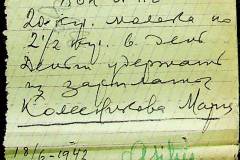 20 кг. молока по
2 1/2 кг. в день
Деньги удержать
из зарплаты
Колесникова Мария
18/6-1942